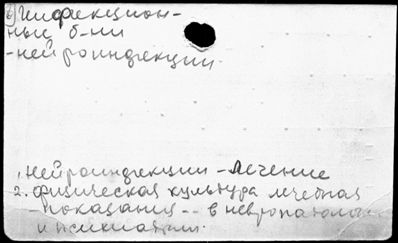 б) Инфекцион-
ные б-ни
-нейроинфекции.
1. нейроинфекции - лечение
2. физическая культура лечебная
- показания -- в невропатологии
и психиатрии.